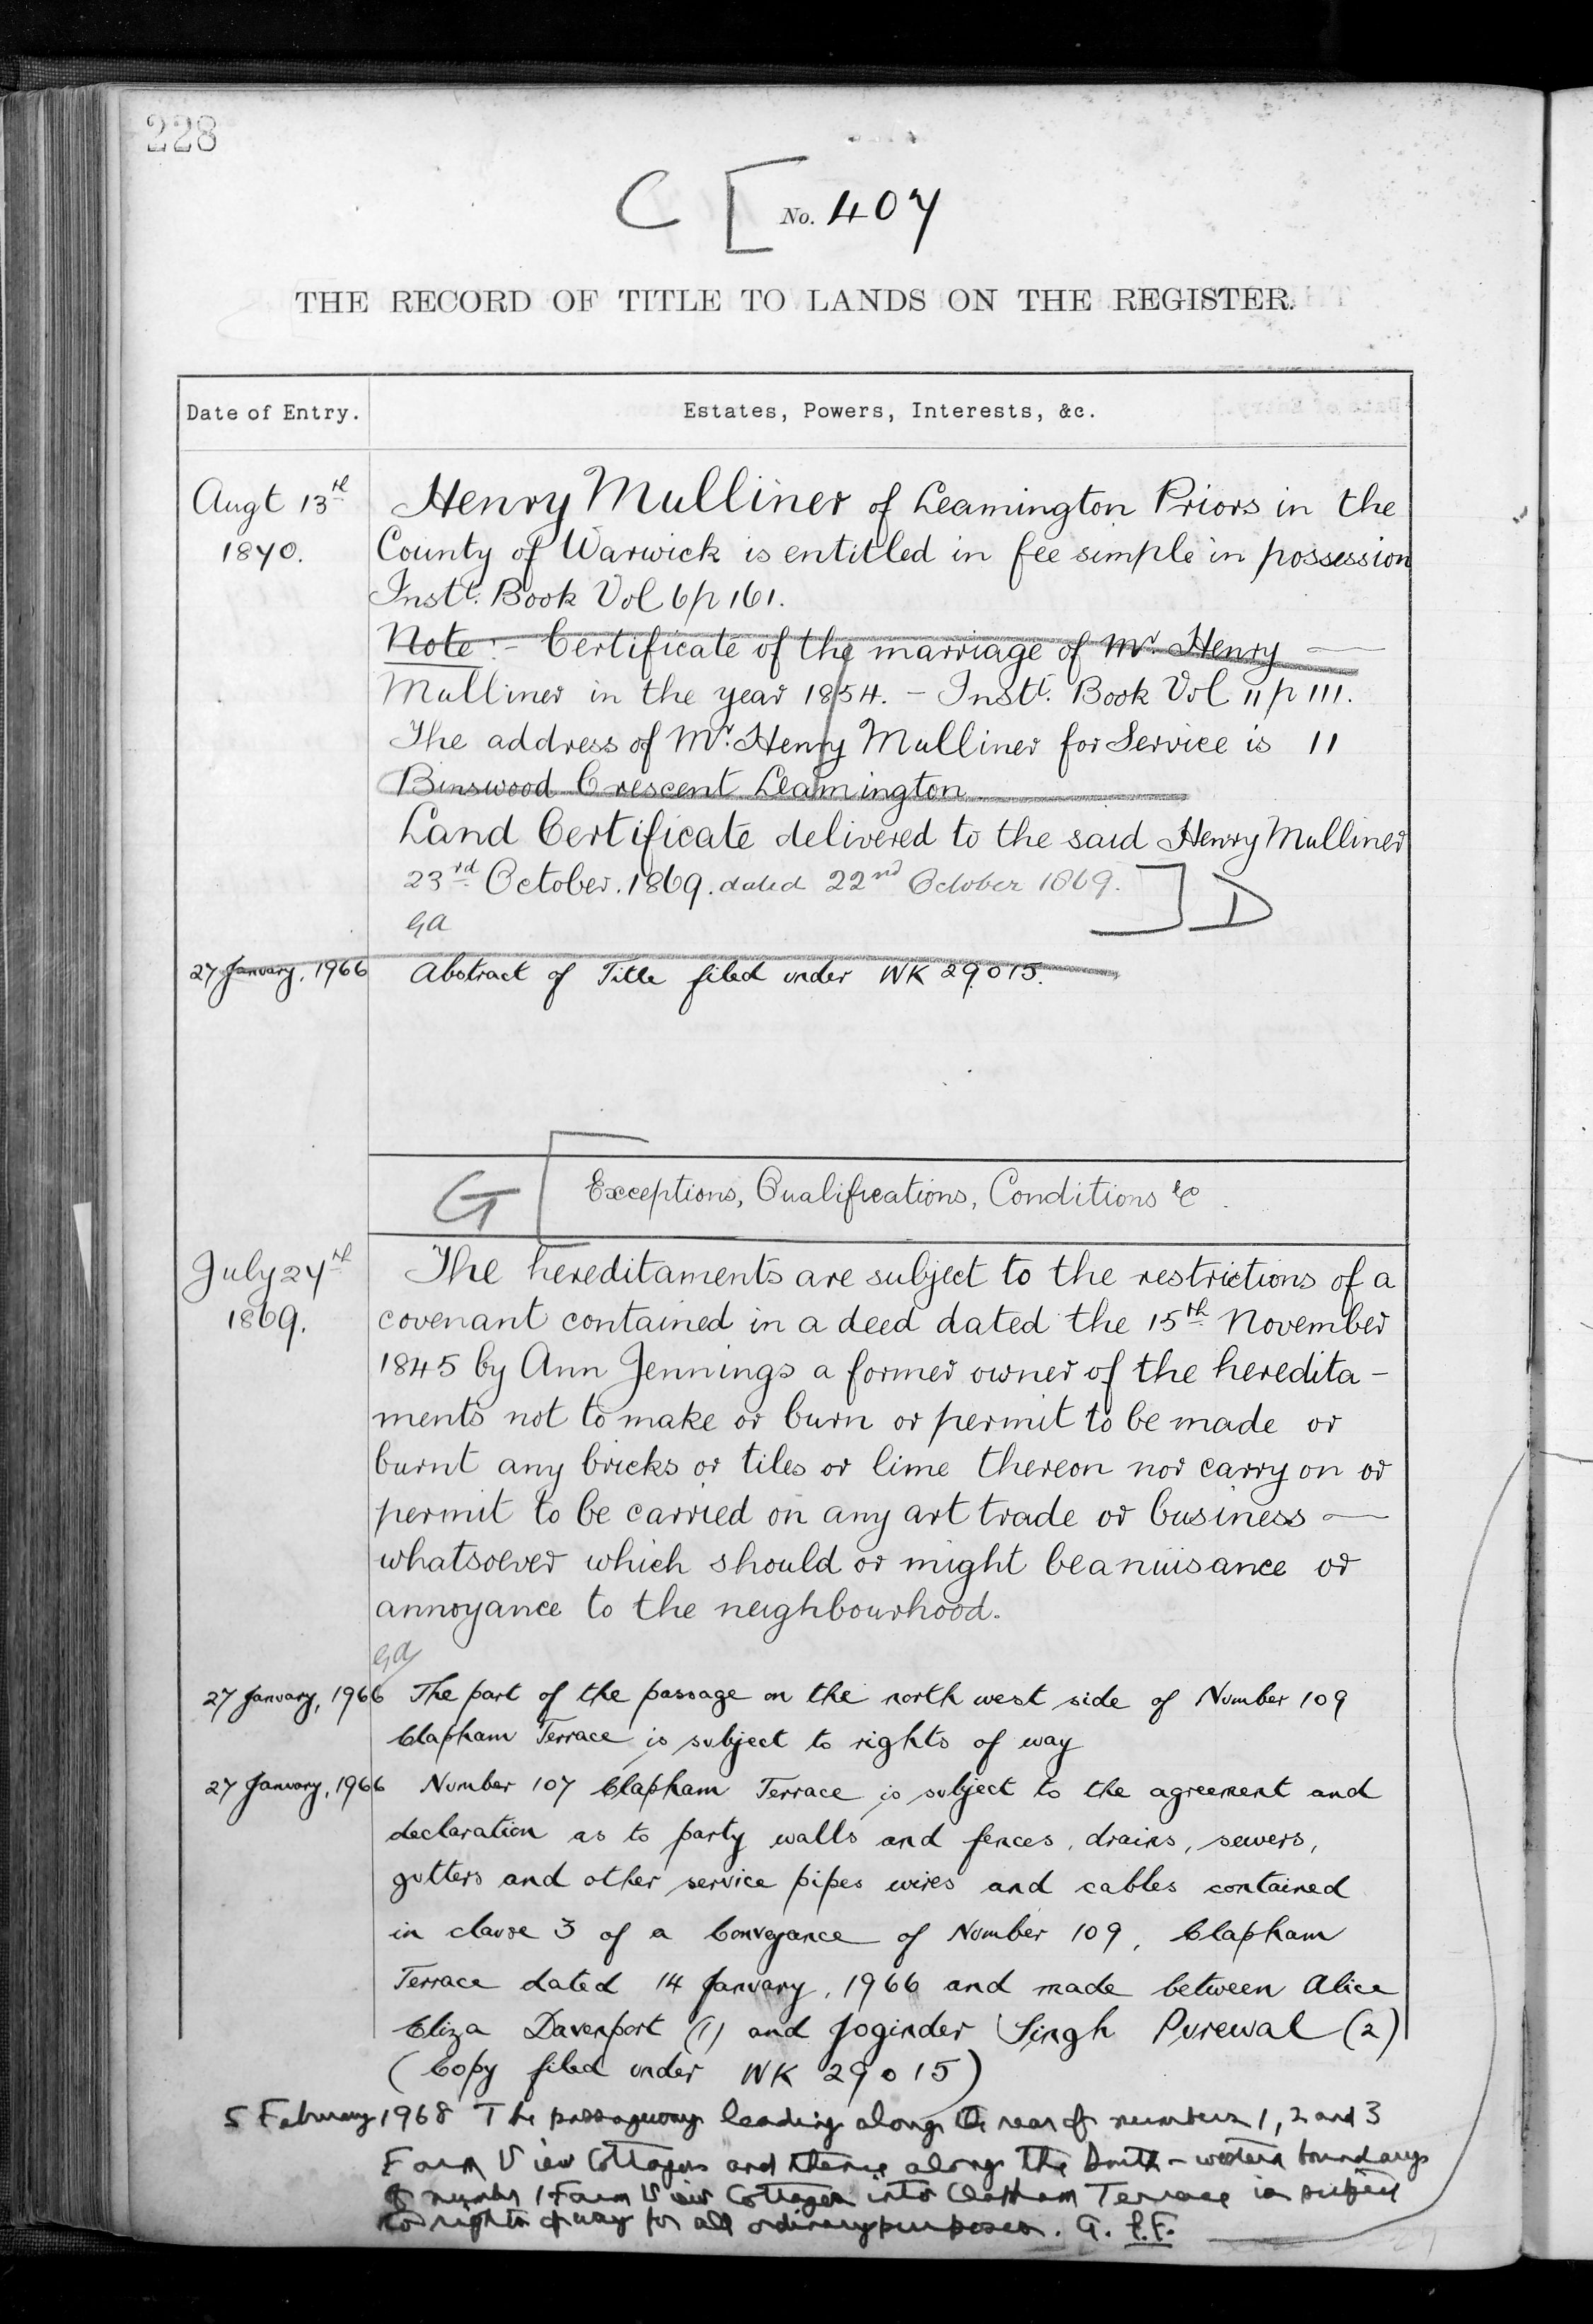 228
C [ No. 407
THE RECORD OF TITLE TO LANDS ON THE REGISTER.
Date of Entry. Estates, Powers, Interests, &c.
Augt 13th 1870.
Henry Mulliner of Leamington Priors in the
County of Warwick is entitled in fee simple in possession
Instt. Book Vol 6 p 161.
Note:- Certificate of the marriage of Mr. Henry
Mulliner in the year 1854. - Instt. Book Vol 11 p 111.
The address of Mr. Henry Mulliner for Service is 11
Binswood Crescent Leamington
Land Certificate delivered to the said Henry Mulliner
23rd October. 1869. dated 22nd October 1869. ] D
GA
27 January, 1966 Abstract of Title filed under WK 29015.
G [ Exceptions, Qualifications, Conditions &c.
July 27th 1869.
The hereditaments are subject to the restrictions of a
covenant contained in a deed dated the 15th November
1845 by Ann Jennings a former owner of the heredita-
ments not to make or burn or permit to be made or
burnt any bricks or tiles or lime thereon nor carry on or
permit to be carried on any art trade or business
whatsoever which should or might be a nuisance or
annoyance to the neighbourhood.
GA
27 January, 1966 The part of the passage on the north west side of Number 109
Clapham Terrace is subject to rights of way
27 January, 1966 Number 107 Clapham Terrace is subject to the agreement and
declaration as to party walls and fences, drains, sewers,
gutters and other service pipes wires and cables contained
in clause 3 of a Conveyance of Number 109, Clapham
Terrace dated 14 January, 1966 and made between Alice
Eliza Davenport (1) and Joginder Singh Purewal (2)
(Copy filed under WK 29015)
5 February 1968 The passageway leading along the rear of numbers 1, 2 and 3
Farm View Cottages and thence along the South-western boundary
of number 1 Farm View Cottages into Clapham Terrace is subject
to rights of way for all ordinary purposes. G.